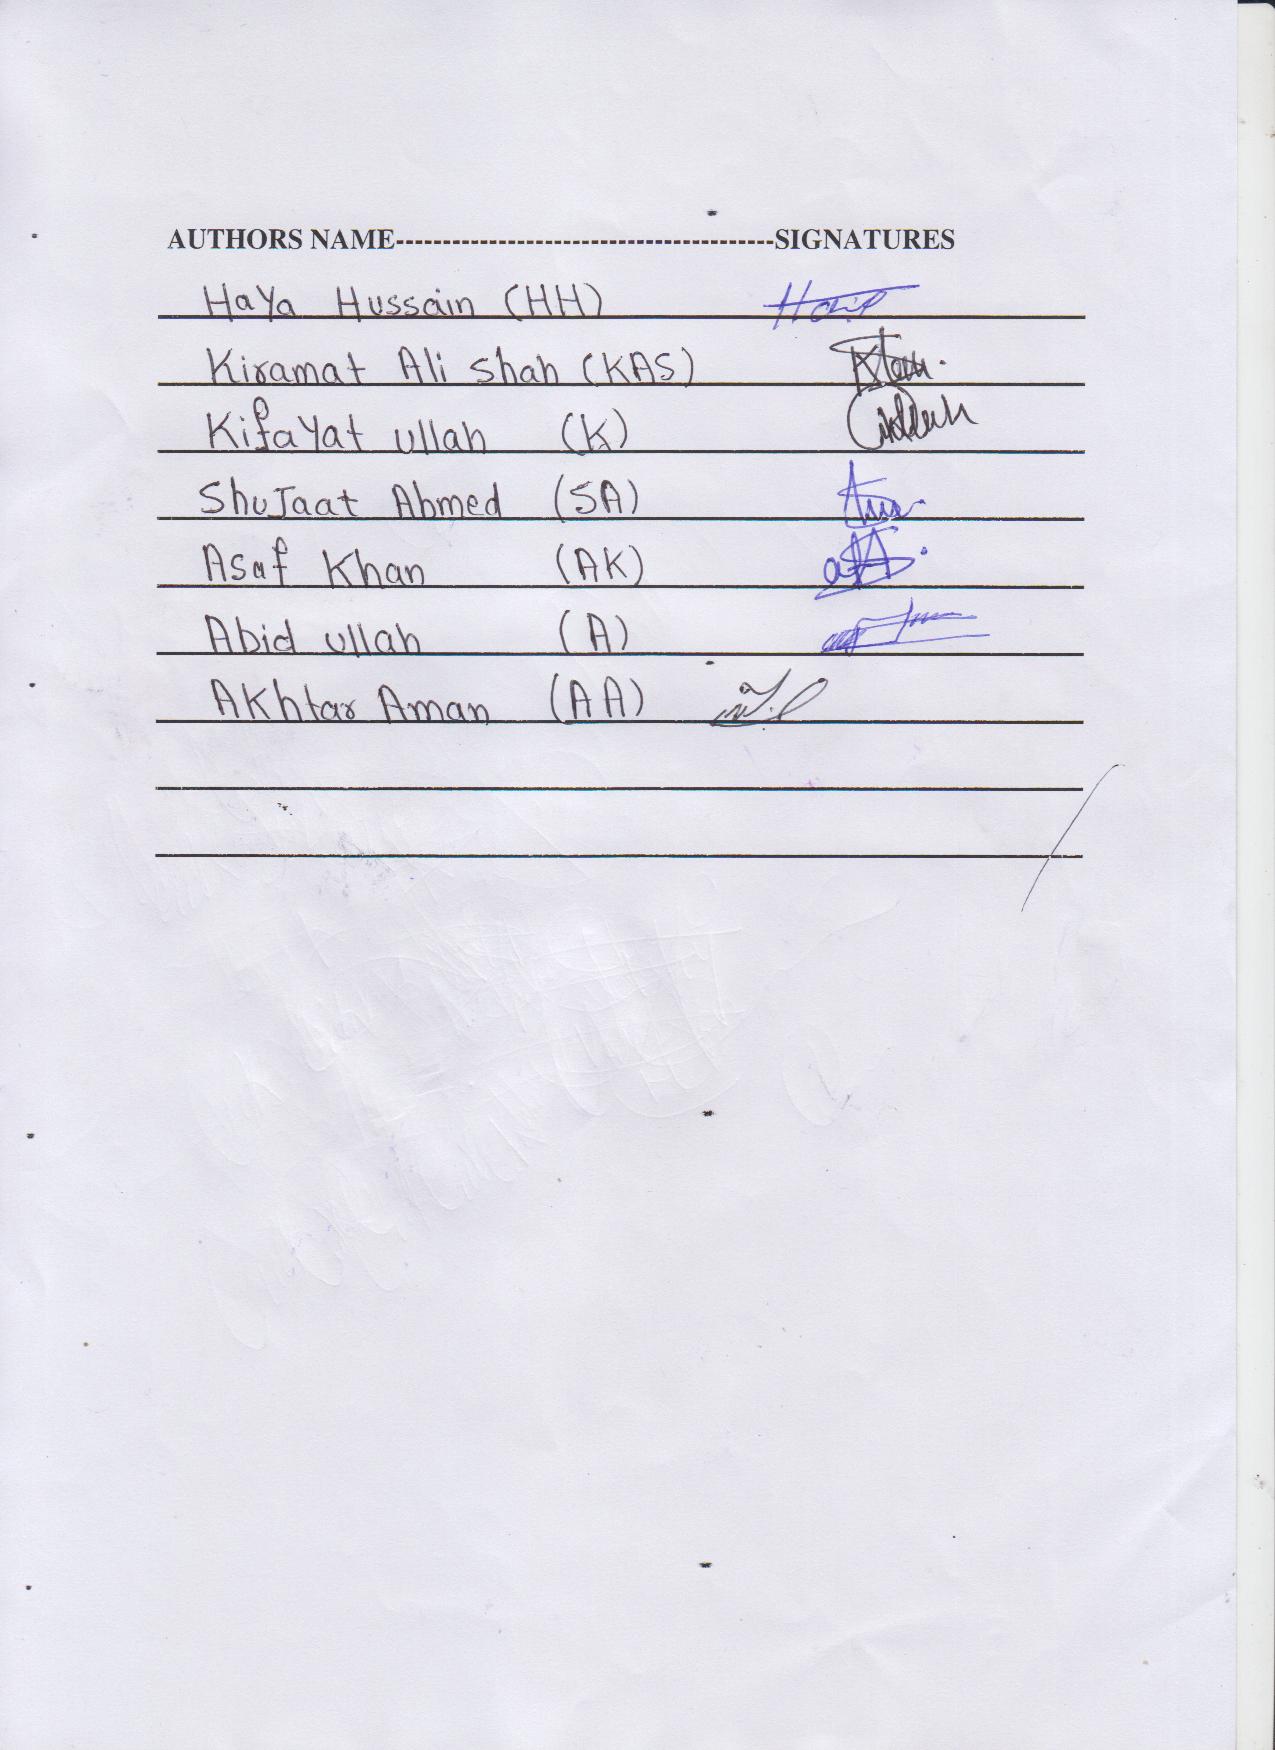 AUTHORS NAME-----------------------------------------SIGNATURES
HaYa Hussain (HH)
Kiramat Ali Shah (KAS)
Kifayat ullah (K)
ShuJaat Ahmed (SA)
Asaf Khan (AK)
Abid ullah (A)
AKhtar Aman (AA)